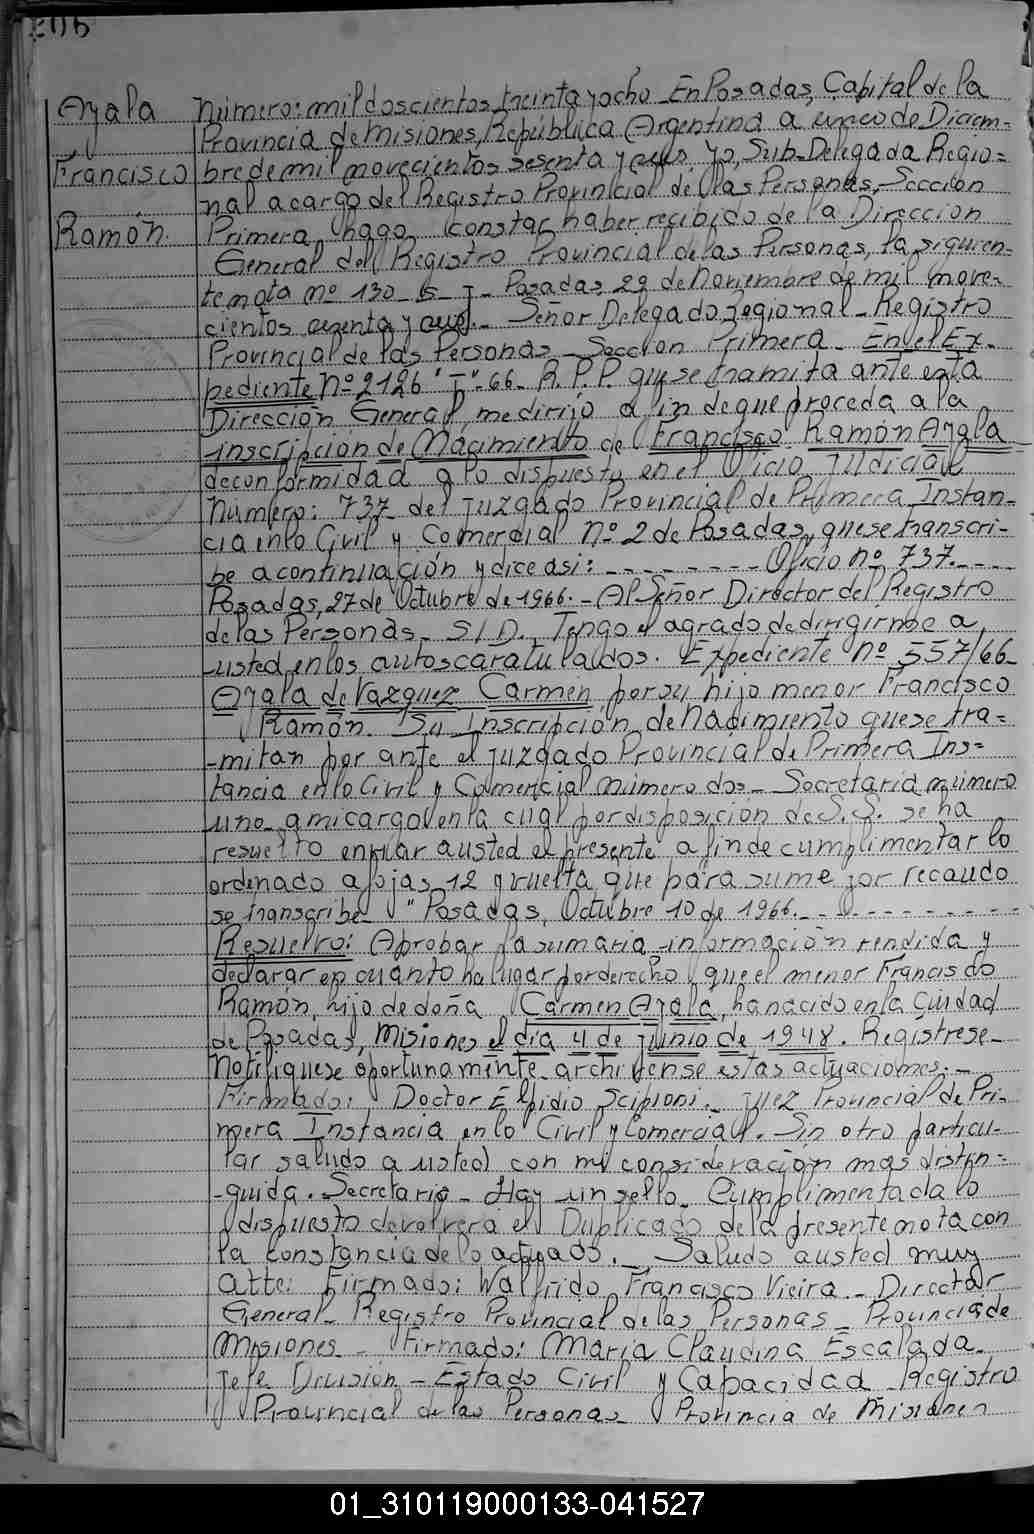 206
Ayala
Francisco
Ramón.
Número: mil doscientos treinta y ocho - En Posadas, Capital de la
Provincia de Misiones, República Argentina a cinco de Diciem-
bre de mil novecientos sesenta y seis Yo, Sub-Delegada Regio=
nal a cargo del Registro Provincial de las Personas, Sección
Primera, hago constar haber recibido de la Dirección
General del Registro Provincial de las Personas, la siguien-
te nota nº 130 Posadas, 29 de Noviembre de mil nove-
cientos sesenta y seis. - Señor Delegado Regional - Registro
Provincial de las Personas - Sección Primera - En el Ex-
pediente Nº 2126 "I"-66- R.P.P. que se tramita ante esta
Dirección General, me dirijo a fin de que proceda a la
inscripción de Nacimiento de Francisco Ramón Ayala
de conformidad a lo dispuesto en el Oficio Judicial
Número: 737 del Juzgado Provincial de Primera Instan-
cia en lo Civil y Comercial Nº 2 de Posadas, que se transcri-
be a continuación y dice asi: - - - - - - - - Oficio nº 737. - - - -
Posadas, 27 de Octubre de 1966. - Al Señor Director del Registro
de las Personas - S/D. Tengo el agrado de dirigirme a
usted en los autos caratulados. Expediente nº 557/66-
Ayala de Vazquez Carmen por su hijo menor Francisco
Ramón. Su Inscripción de Nacimiento que se tra=
-mitan por ante el Juzgado Provincial de Primera Ins=
tancia en lo Civil y Comercial número dos - Secretaría número
uno a mi cargo en la cual por disposición de S.S. se ha
resuelto enviar a usted el presente a fin de cumplimentar lo
ordenado a fojas 12 y vuelta que para su mejor recaudo
se transcribe - "Posadas, Octubre 10 de 1966. - - - - - - - - - - -
Resuelvo: Aprobar la sumaria información rendida y
declarar en cuanto ha lugar por derecho que el menor Francisco
Ramón, hijo de doña Carmen Ayala, ha nacido en la Ciudad
de Posadas, Misiones el día 4 de junio de 1948. Regístrese-
Notifíquese oportunamente archívense estas actuaciones. -
Firmado: Doctor Elpidio Scipioni. - Juez Provincial de Pri-
mera Instancia en lo Civil y Comercial. Sin otro particu-
lar saludo a usted con mi consideración mas distin=
-guida. Secretario - Hay un sello. Cumplimentada lo
dispuesto devolverá el Duplicado de la presente nota con
la constancia de lo actuado. - Saludo a usted muy
atte: Firmado: Walfrido Francisco Vieira. - Director
General - Registro Provincial de las Personas - Provincia de
Misiones - Firmado: María Claudina Escalada -
Jefe División - Estado Civil y Capacidad - Registro
Provincial de las Personas - Provincia de Misiones
01_310119000133-041527